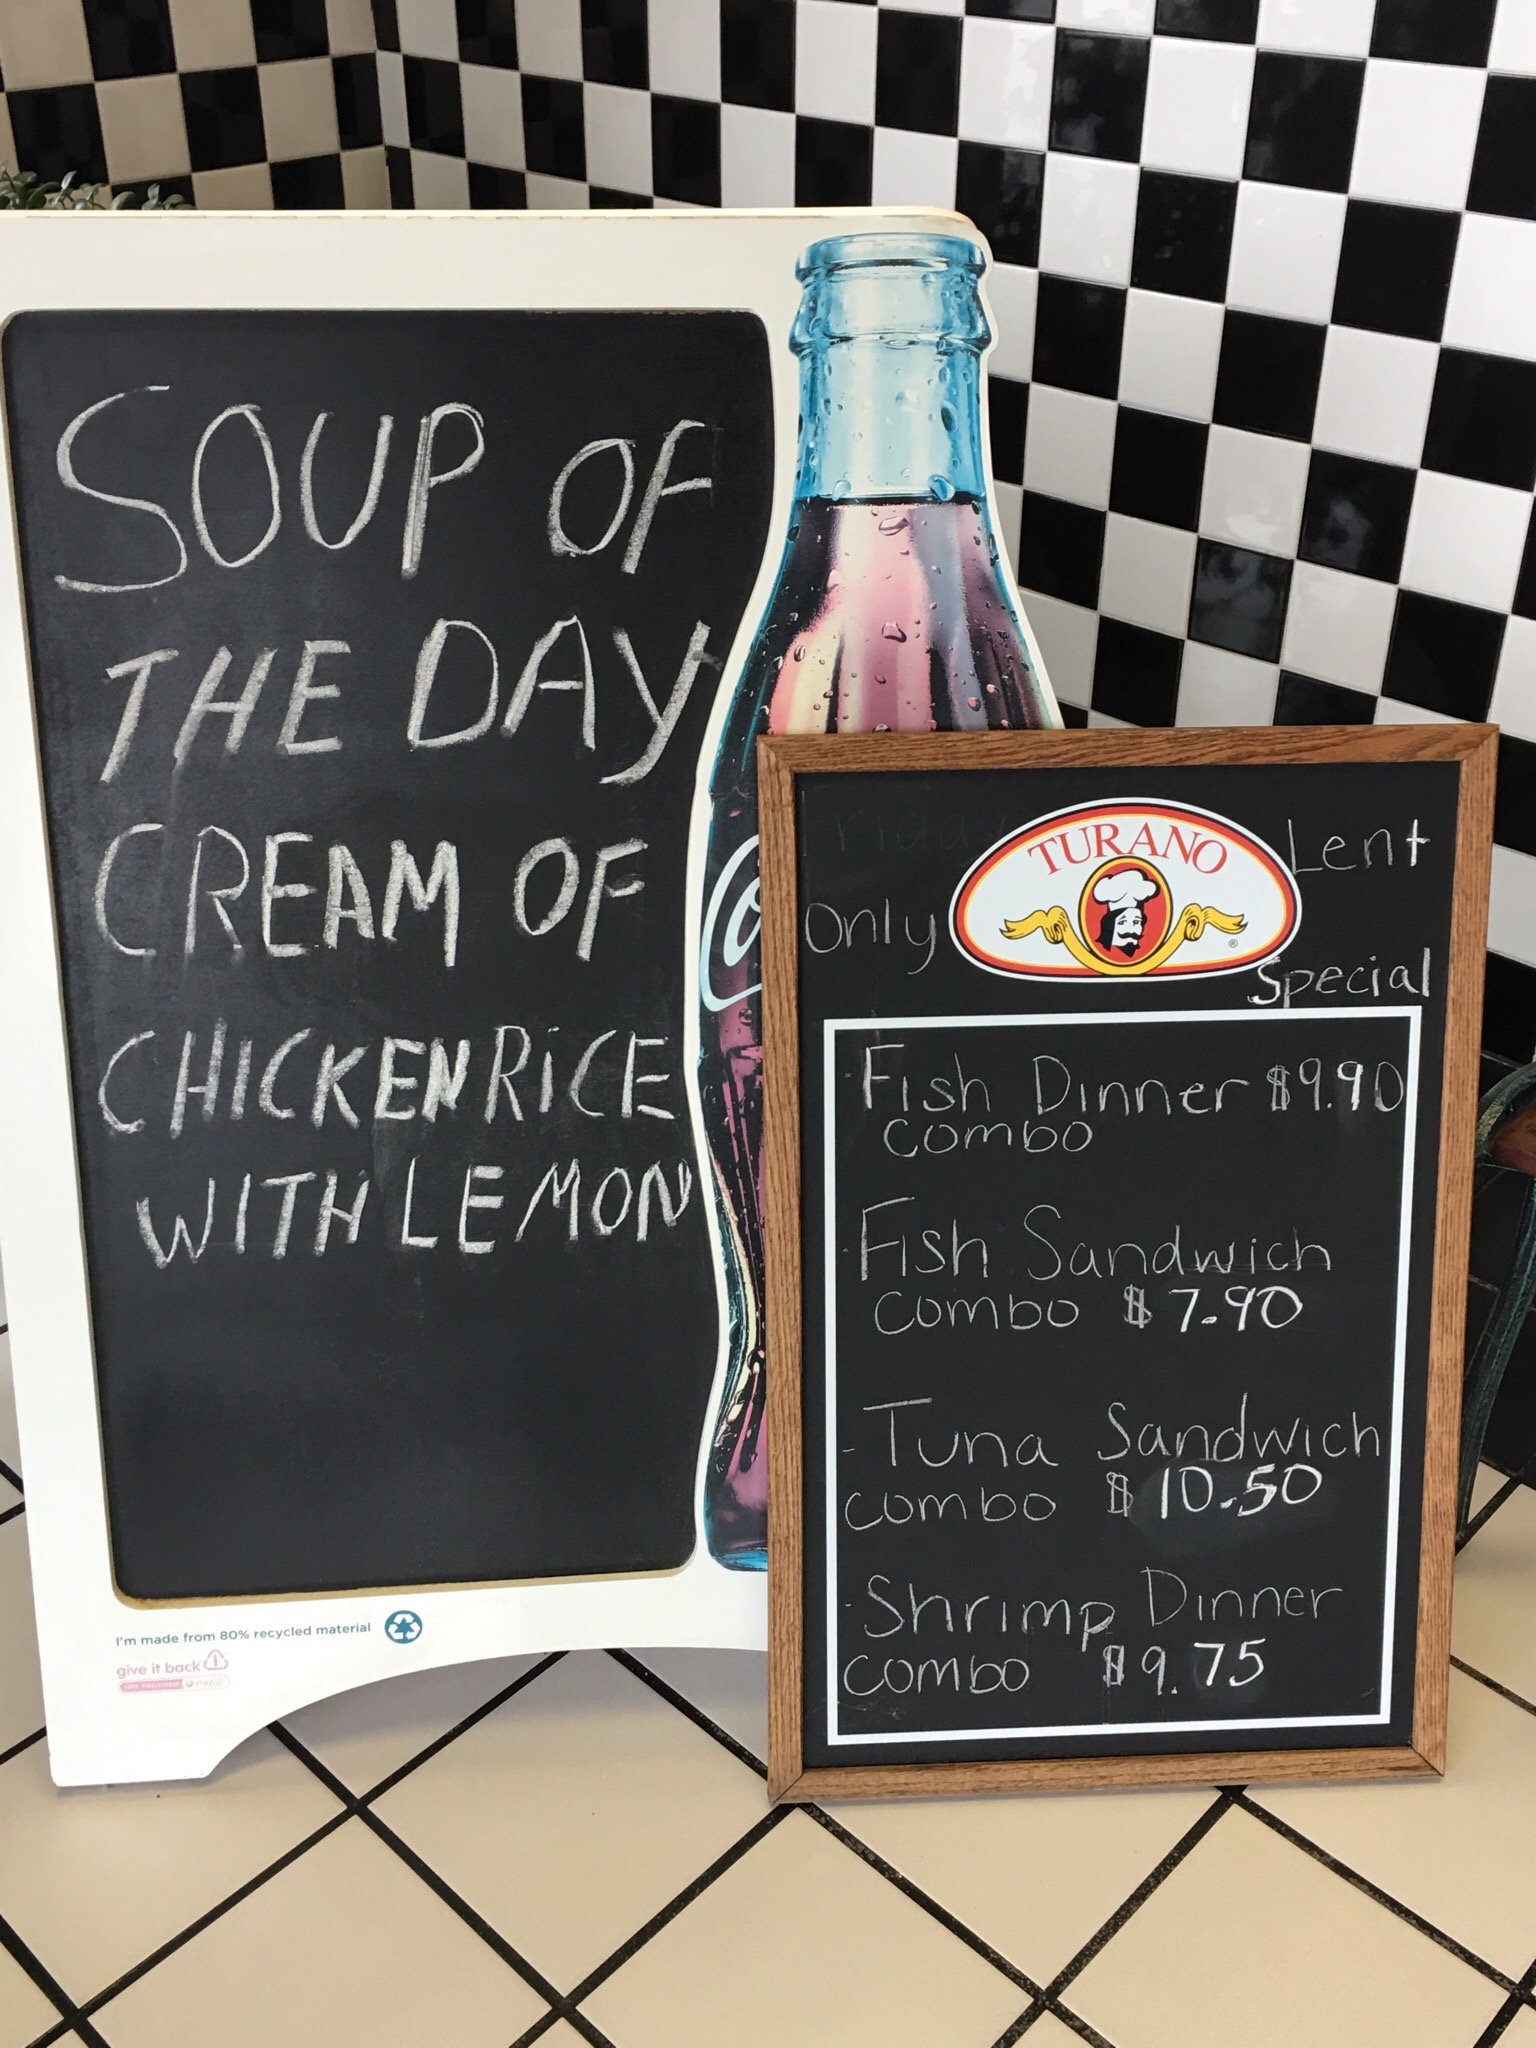 SOUP OF
THE DAY
CREAM OF
CHICKEN RiCE
WITH LEMON
I'm made from 80% recycled material
give it back
TURANO
®
Only
Lent
Special
- Fish Dinner $9.90
combo
- Fish Sandwich
combo $7.90
- Tuna Sandwich
combo $10.50
- Shrimp Dinner
combo $9.75